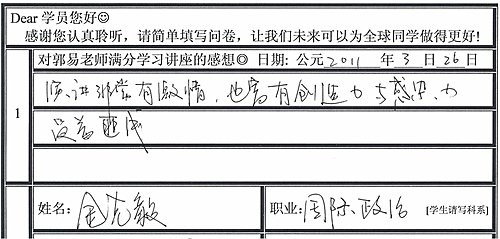 Dear 学员您好☺
感谢您认真聆听，请简单填写问卷，让我们未来可以为全球同学做得更好!
对郭易老师满分学习讲座的感想◎ 日期: 公元2011 年3月26日
1
演讲非常有激情，也富有创造力与感染力
没有
姓名: 金克敏
职业: 国际政治 [学生请写科系]